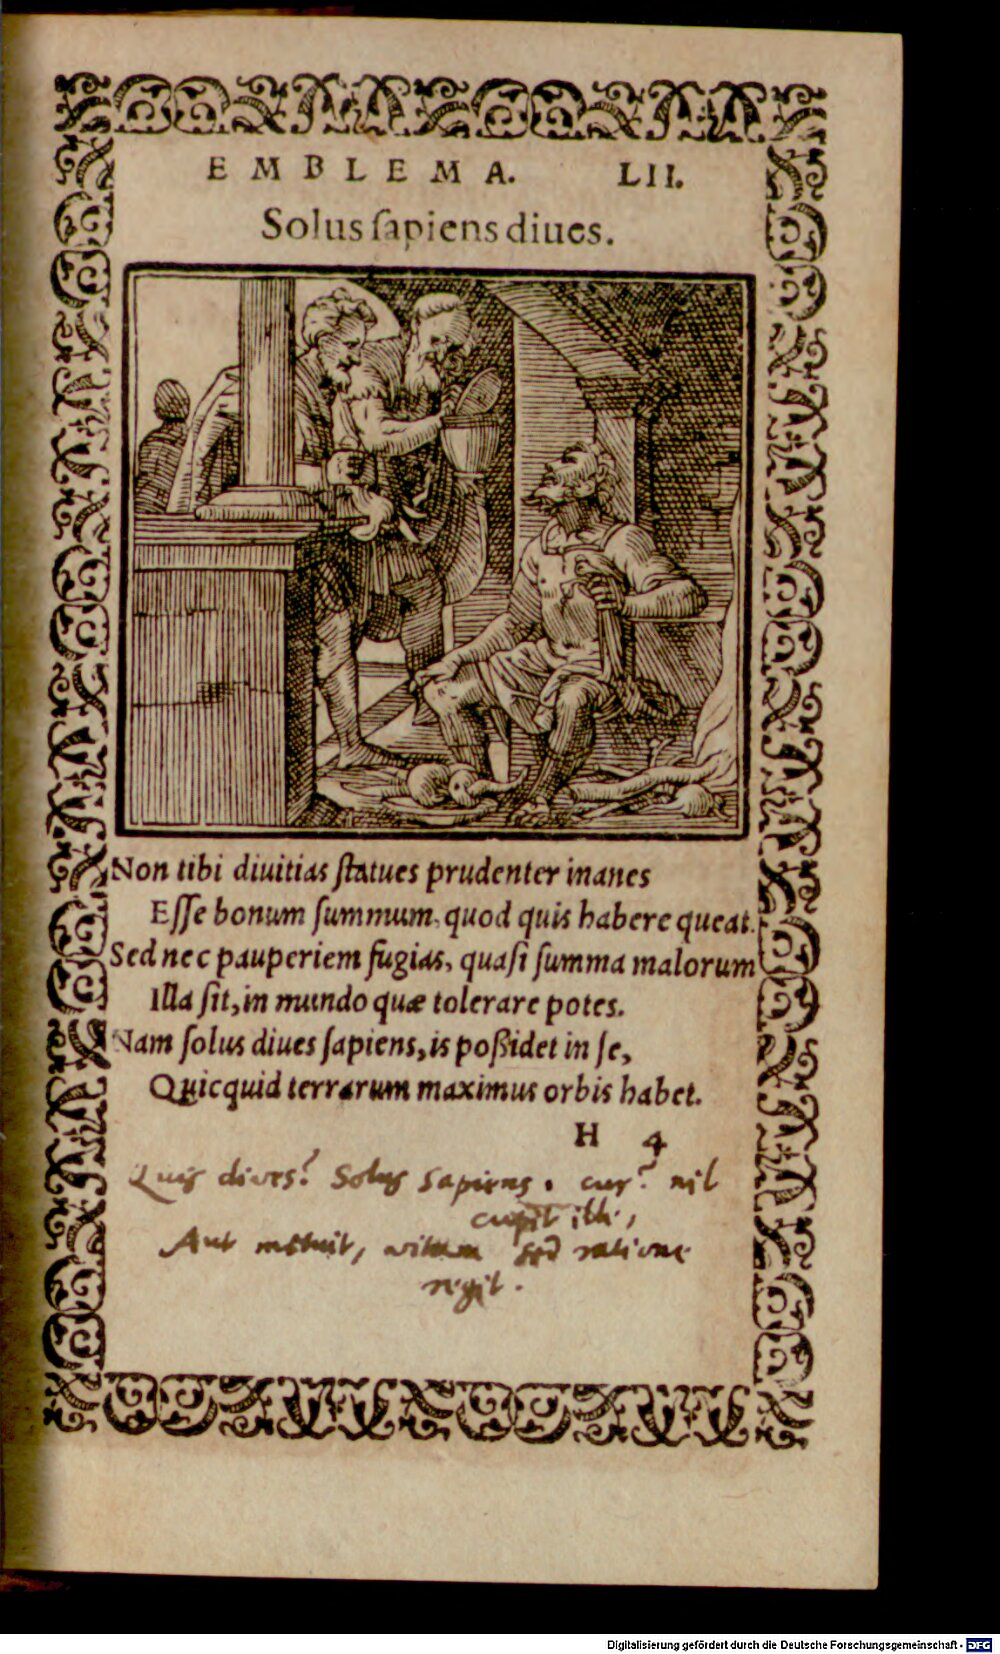 EMBLEMA. LII.
Solus ſapiens diues.
Non tibi diuitias ſtatues prudenter inanes
Eſſe bonum ſummum, quod quis habere queat.
Sed nec pauperiem fugias, quaſi ſumma malorum
Illa ſit, in mundo quæ tolerare potes.
Nam ſolus diues ſapiens, is poßidet in ſe,
Quicquid terrarum maximus orbis habet.
H 4
Quis dives? Solus sapiens. cur? nil
cupit ille,
Aut metuit, vitam sed ratione
regit.
Digitalisierung gefördert durch die Deutsche Forschungsgemeinschaft - DFG